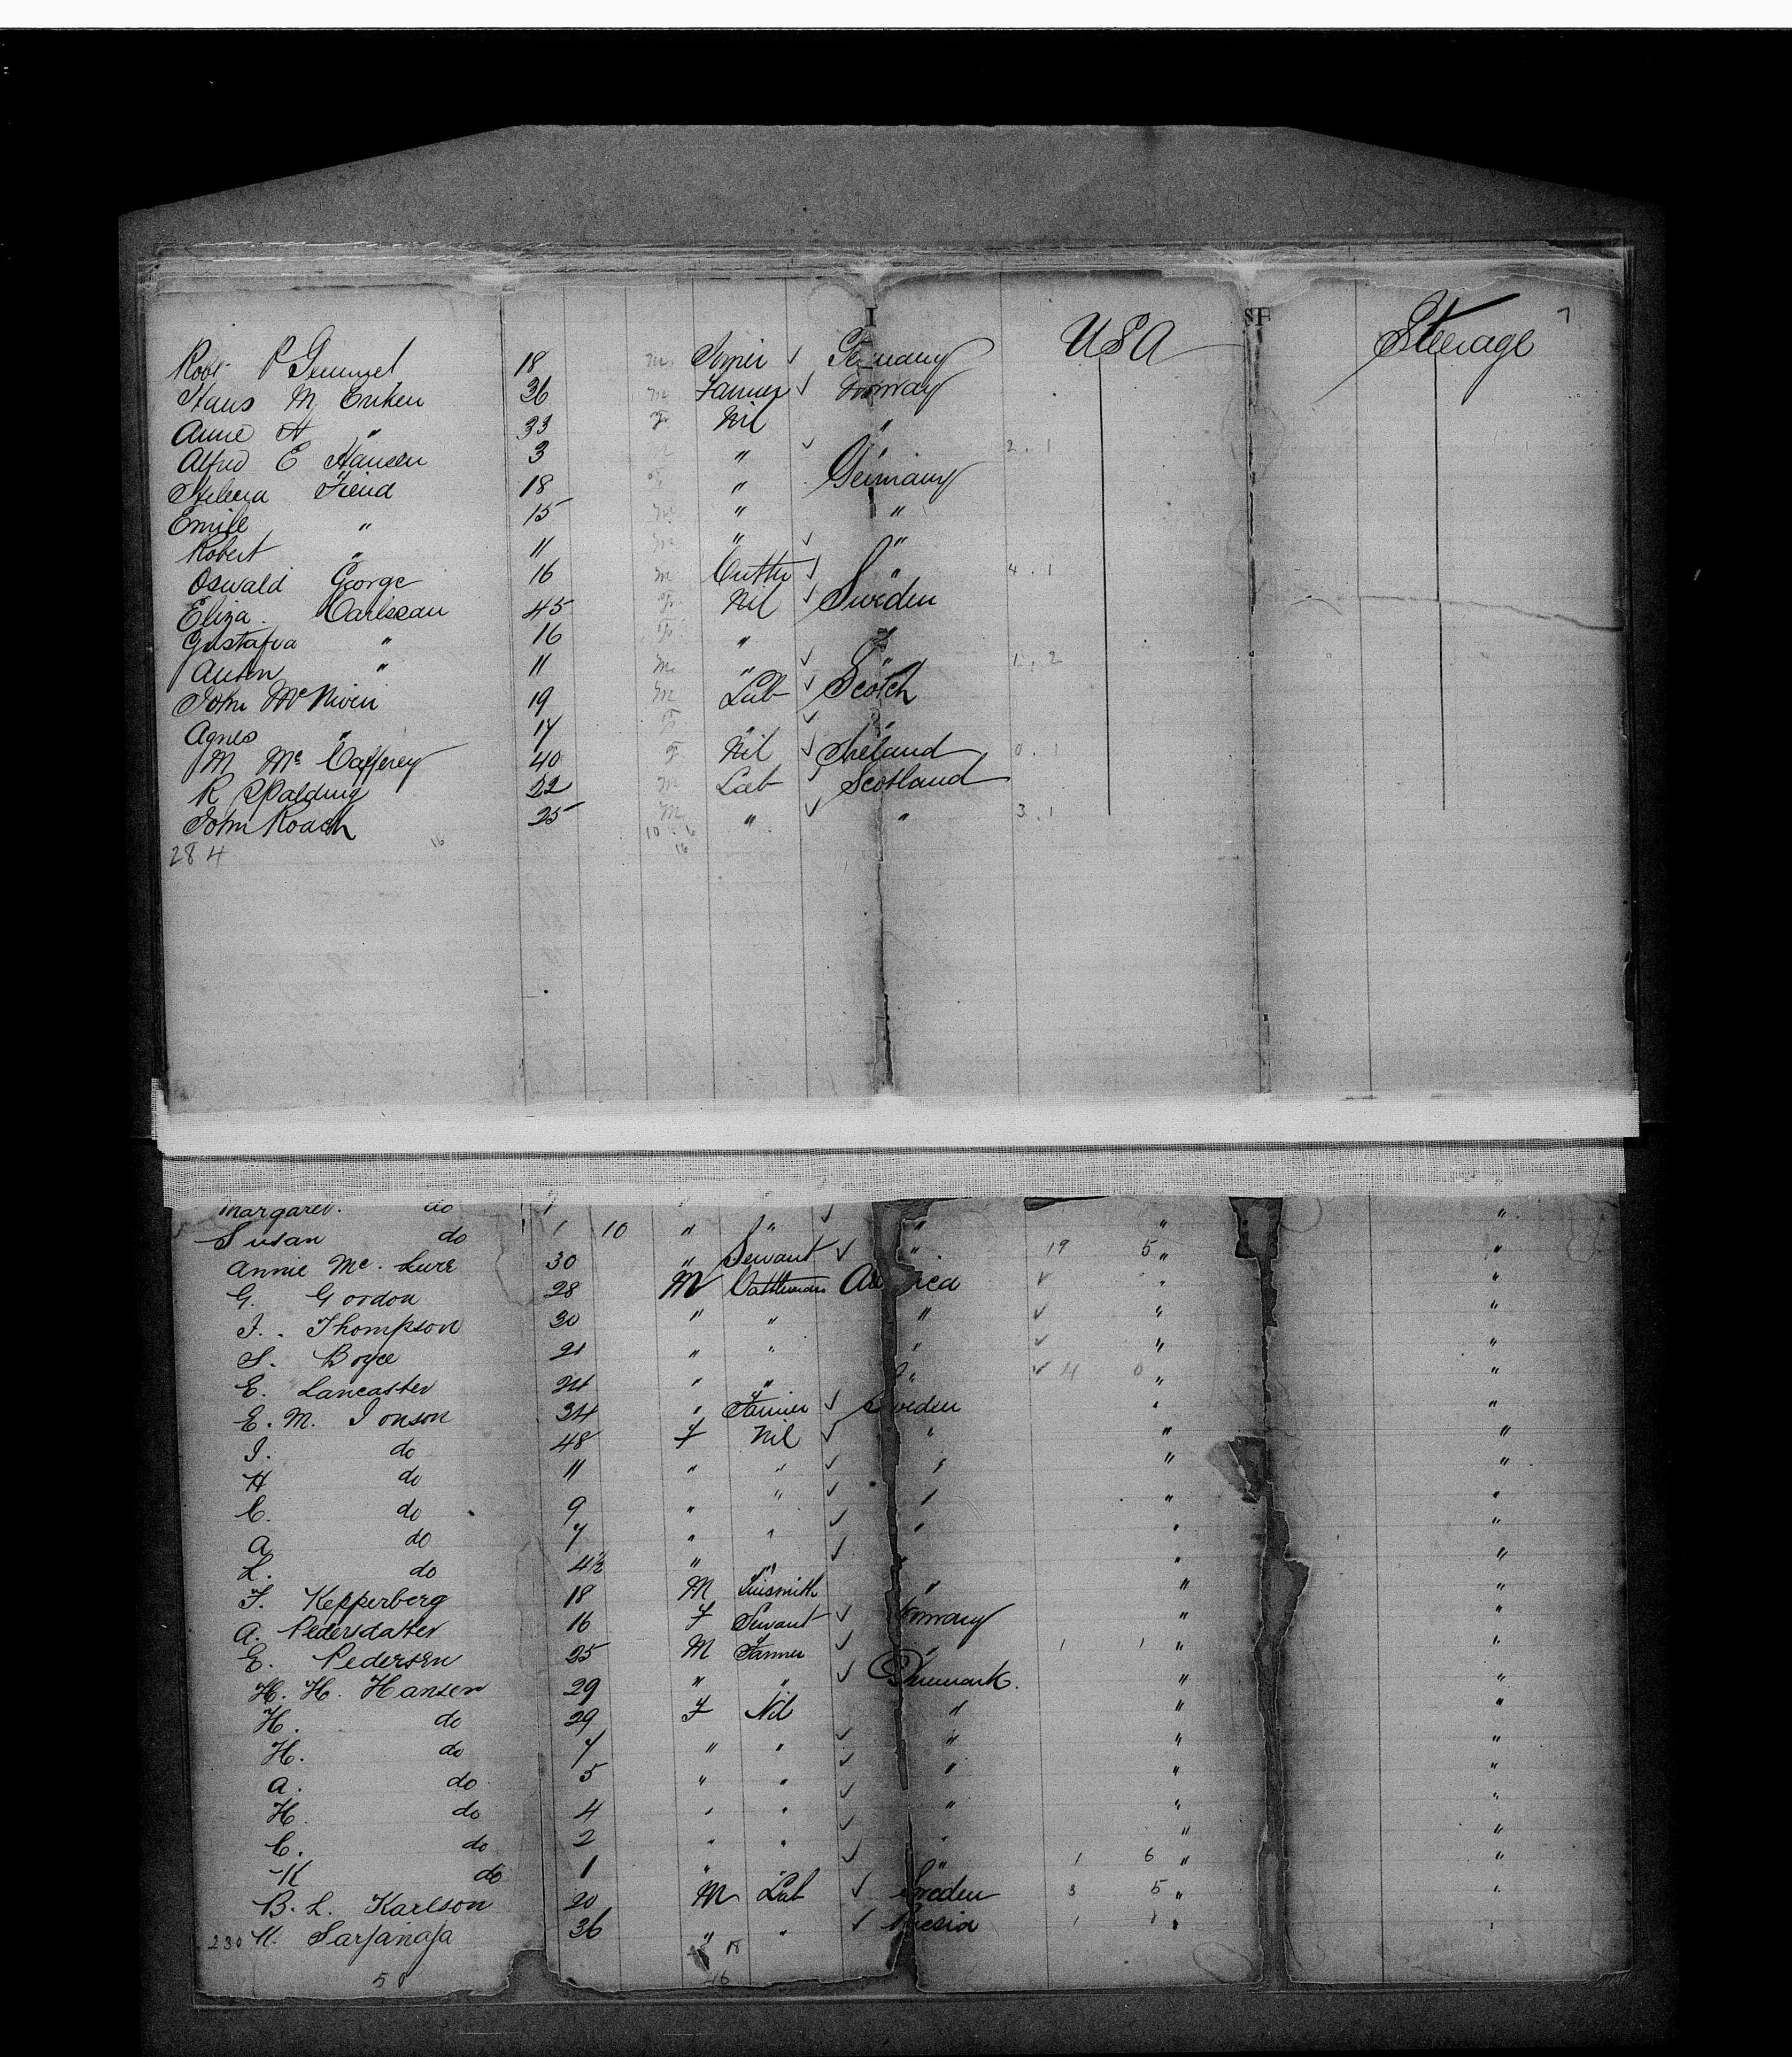 I USA SF Steerage 7
Robt P Gemmel 18 m Joiner ✓ Germany
Hans M Eriksen 36 m Farmer ✓ Norway
Anne A " 33 F Nil "
Alfred E Hansen 3 " ✓ " 2 . 1
Helena Fiend 18 F " Germany
Emile " 15 m " "
Robert " 11 m " ✓ "
Oswald George 16 m Cutter ✓ " 4 . 1
Eliza Carlssan 45 F Nil ✓ Sweden
Gustafva " 16 F " "
Anton " 11 m " ✓ " 1 . 2
John McNiven 19 m Lab ✓ Scotch
Agnes " 17 F " ✓ "
M Mc Cafferey 40 F Nil ✓ Ireland 0 . 1
R Spalding 22 m Lab ✓ Scotland
John Roach 25 M " ✓ " 3 . 1
284 16 10 . 6
16
Margaret do " " ✓ "
Susan do 1 10 " " " " "
Annie Mc. Lure 30 " Servant ✓ " 19 5 " "
G. Gordon 28 M Cattleman America ✓ " "
J. Thompson 30 " " " ✓ " "
S. Boyce 21 " " " ✓ " "
E. Lancaster 24 " " " ✓ 4 0 " "
E. M. Jonson 34 " Farmer ✓ Sweden " "
I. do 48 F Nil ✓ " " "
H do 11 " " ✓ " " "
C. do 9 " " ✓ " " "
A do 7 " " ✓ " " "
L. do 4½ " " ✓ " " "
F. Kepperberg 18 M Tinsmith " " "
A. Pedersdatter 16 F Servant ✓ Norway " "
E. Pedersen 25 M Farmer ✓ " 1 1 " "
H. H. Hansen 29 " " ✓ Denmark. " "
H. do 29 F Nil " " "
H. do 7 " " ✓ " " "
A. do 5 " " ✓ " " "
H do 4 " " ✓ " " "
C. do 2 " " ✓ " " "
K do 1 " " ✓ " 1 6 " "
B. L. Karlson 20 M Lab ✓ Sweden 3 5 " "
230 K. Sarjanaja 36 " " ✓ Russia 1 1 " "
50 18
16